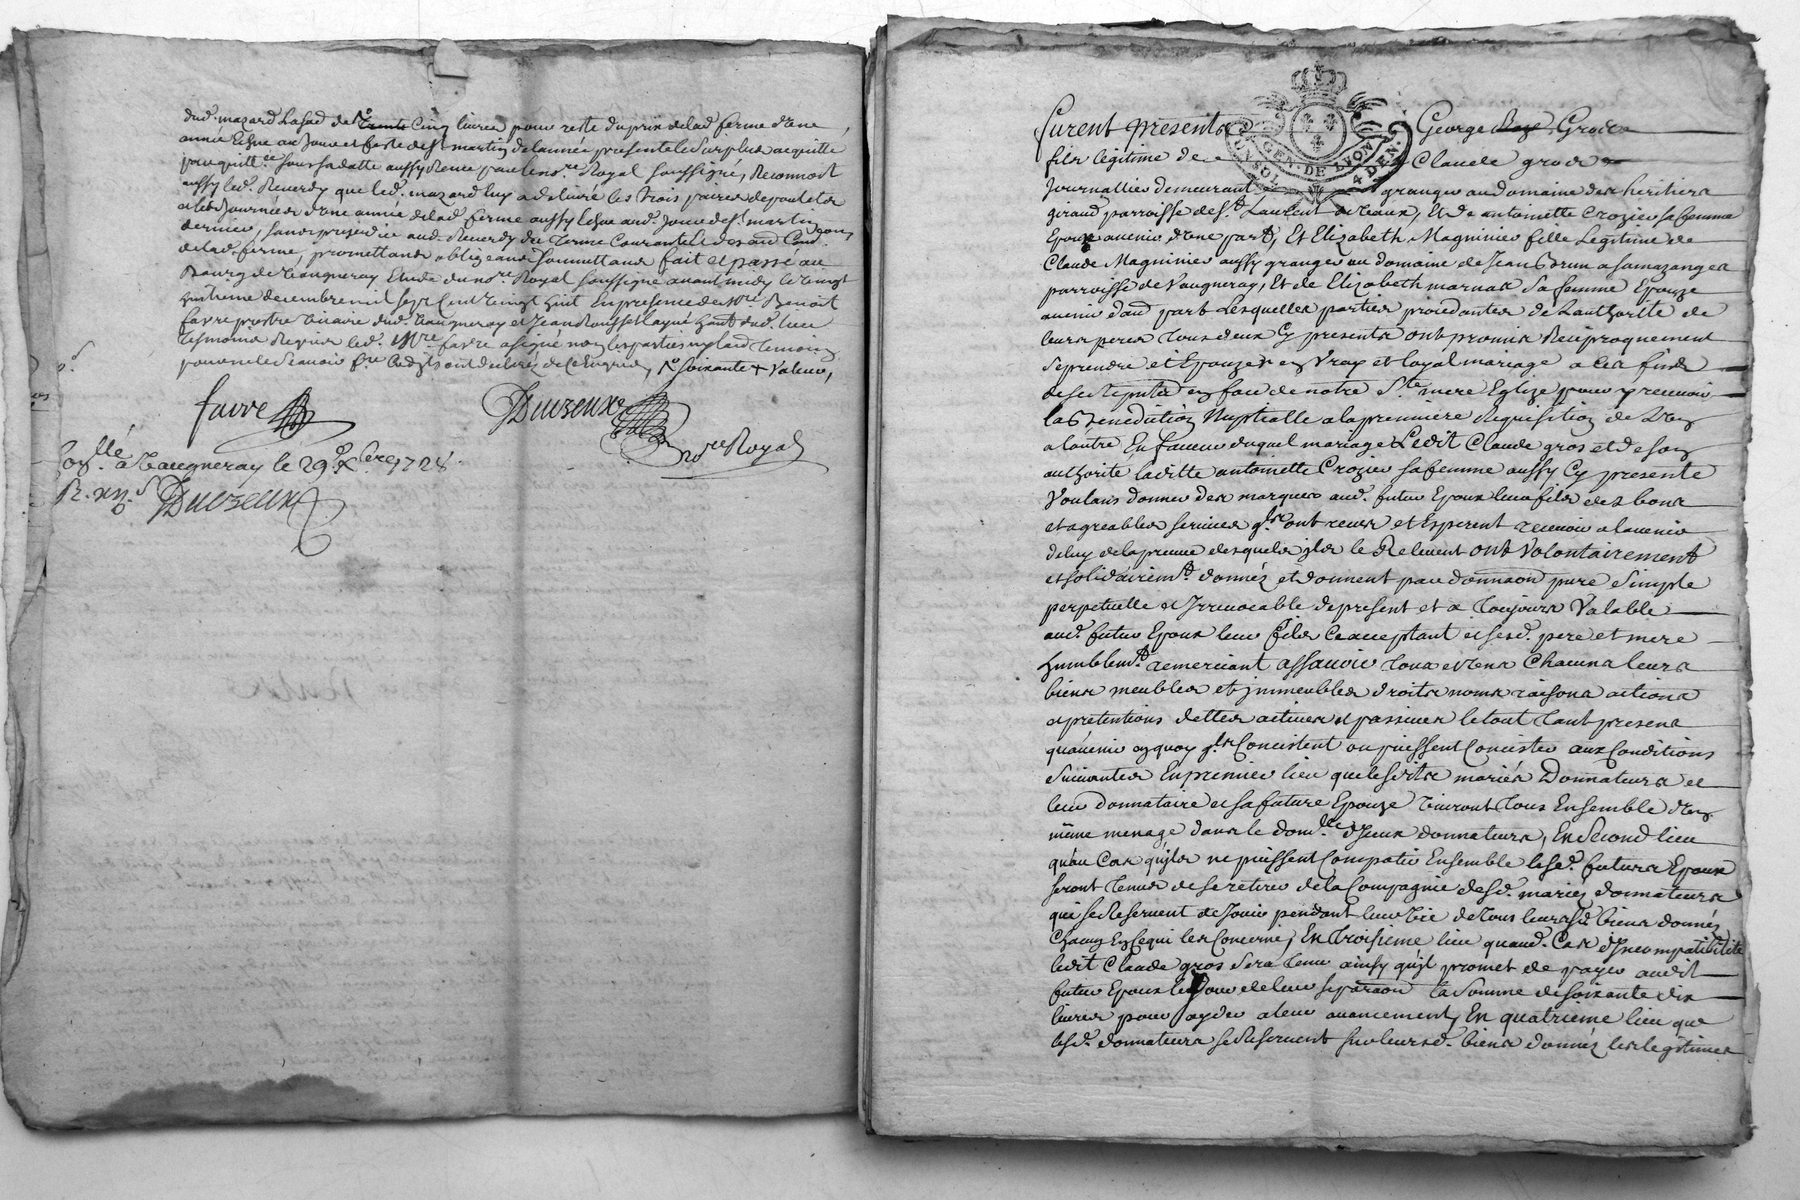 dud. mazard la so.e de Trente Cinq livres pour reste du prix de lad. ferme d'une
année Echue au Jour et feste de st martin de l'année presente le surplus acquitté
par quitt.ce sous sa datte aussy Receue par le no.re Royal soussigné, Reconnoit
aussy led. Reverdy que led. mazard luy a delivré les trois paires de poulets
et les Journées d'une année de lad. ferme aussy Echue aud. Jour de st martin
dernier, sans prejudice aud. Reverdy du terme Courant et des au.
de lad. ferme, promettans obligeans soumettans fait et passé au
Bourg de Vaugneray Etude du no.re Royal soussigné avant midy le vingt
huitieme decembre mil sept Cent vingt huit En presence de M.re Benoit
favre prestre vicaire dud. Vaugneray et Jean Rousset laqué hant dud. lieu
tesmoins Requis led. M.re favre a signé non les parties ny led. temoin
pour ne le scavoir
soixante + valeur,
favre
Duvzeux
n.re Royal
Con.llé a Vaugneray le 29.e Xbre 1728
R. xij. s
Duvzeux
furent presents George Groz
GEN. DE LYON
4 DEN.
fils légitime de Claude gros
Journallier demeurant granger au domaine des heritiers
giraud parroisse de S.t Laurent de Vaux, Et de antoinette Crozier sa femme
Epoux avenir d'une part, Et Elizabeth Magninier fille Legitime de
Claude Magninier aussy granger au domaine de Jean Brun a la mazanges
parroisse de Vaugneray, Et de Elizabeth marnas sa femme Epouze
avenir d'au. part Lesquelles parties procedantes de L'authorité de
leurs peres tous deux Cy presents ont promis Reciproquement
se prendre et Epouzer en Vray et loyal mariage a ces fins
de se repnter en face de notre S.te mere Eglize pour y recevoir
la Benediction Nuptialle a la premiere Requisition de L'un
a l'autre En faveur duquel mariage Ledit Claude gros et de son
authorité laditte antoinette Crozier sa femme aussy Cy presente
Voulans donner des marques aud. futur Epoux leur fils des bons
et agreables services qls ont receus et Esperent recevoir a l'avenir
de luy de la preuve desquels ils le Relevent ont Volontairement
et solidairemt. donnéz et donnent par donnaon pure Simple
perpetuelle et Irrevocable de present et a toujours Valable
aud. futur Epoux leur fils Ce acceptant et sesd. pere et mere
humblemt. remerciant assavoir tous et uns Chacuns leurs
biens meubles et jmmeubles droits noms raisons actions
et pretentions dettes actives et passives le tout tant presens
qu'avenir en quoy qls Concistent ou puissent Concister aux Conditions
suivantes En premier lieu que lesdits mariés Donnateurs et
leur donnataire et sa future Epouze vivront tous Ensemble d'un
même menage dans le dom.lle d'Iceux donnateurs, En Second lieu
qu'au Cas qu'ils ne puissent Compatir Ensemble lesd. futurs Epoux
seront tenus de se retirer de la Compagnie desd. mariez donnateurs
qui se Reservent de Jouir pendant leur Vie de tous leursd. biens donnés
Chacun En Ce qui les Concerne, En troisieme lieu qu'aud. Cas d'Incompatibilité
ledit Claude gros sera tenu ainsy qu'il promet de payer audit
futur Epoux le Jour de leur separaon la somme de soixante dix
livres pour ayder a leur avancement, En quatrieme lieu que
lesd. donnateurs se Reservent sur leursd. biens donnés les legitimes